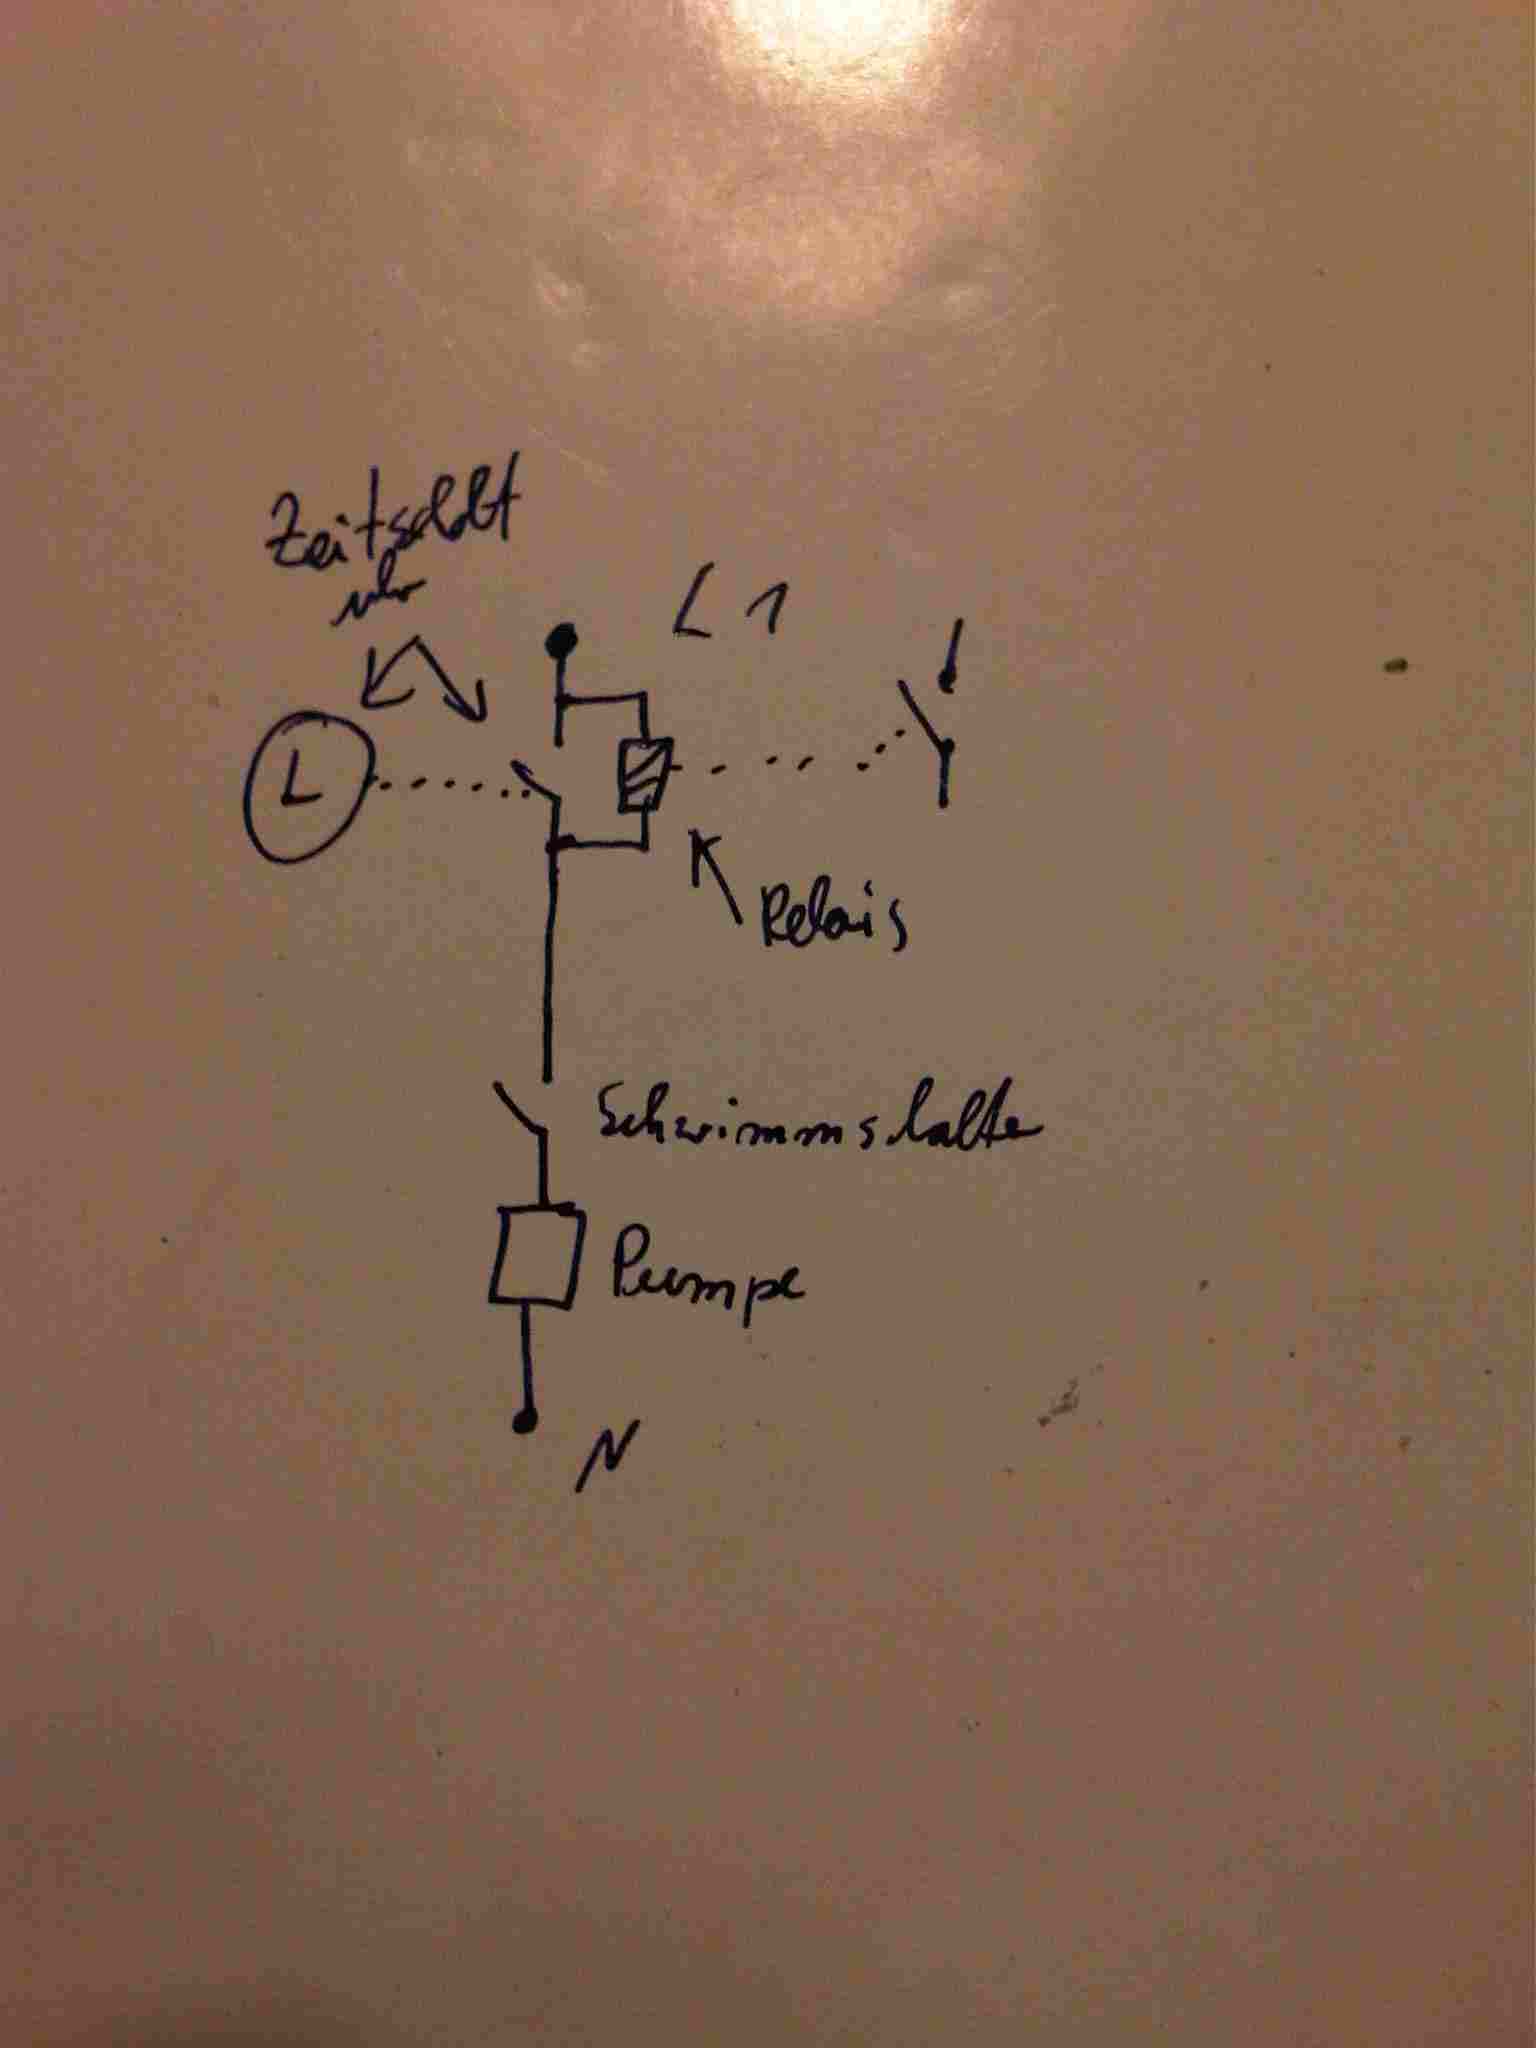 Zeitschalt
uhr
L 1
L
Relais
Schwimmschalter
Pumpe
N